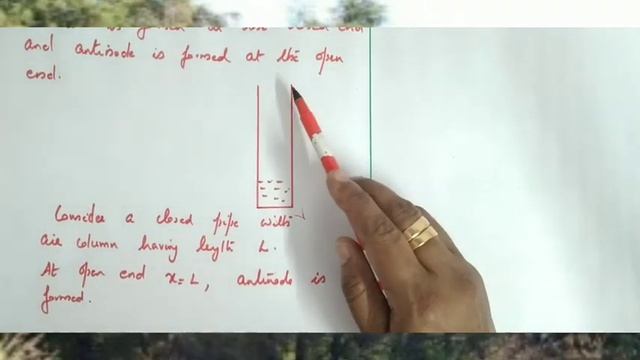 and antinode is formed at the open
end.
Consider a closed pipe with
air column having length L.
At open end x = L, antinode is
formed.